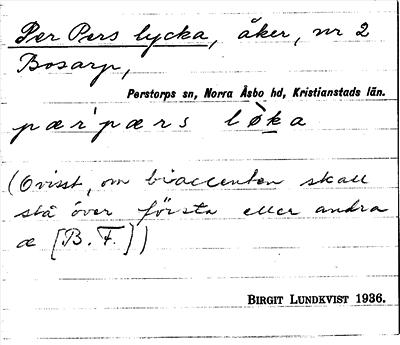 Per Pers lycka, åker, nr 2
Bosarp,
Perstorps sn, Norra Åsbo hd, Kristianstads län.
pær'pærs løka
(Ovisst, om biaccenten skall
stå över första eller andra
æ [B. F.])
BIRGIT LUNDKVIST 1936.